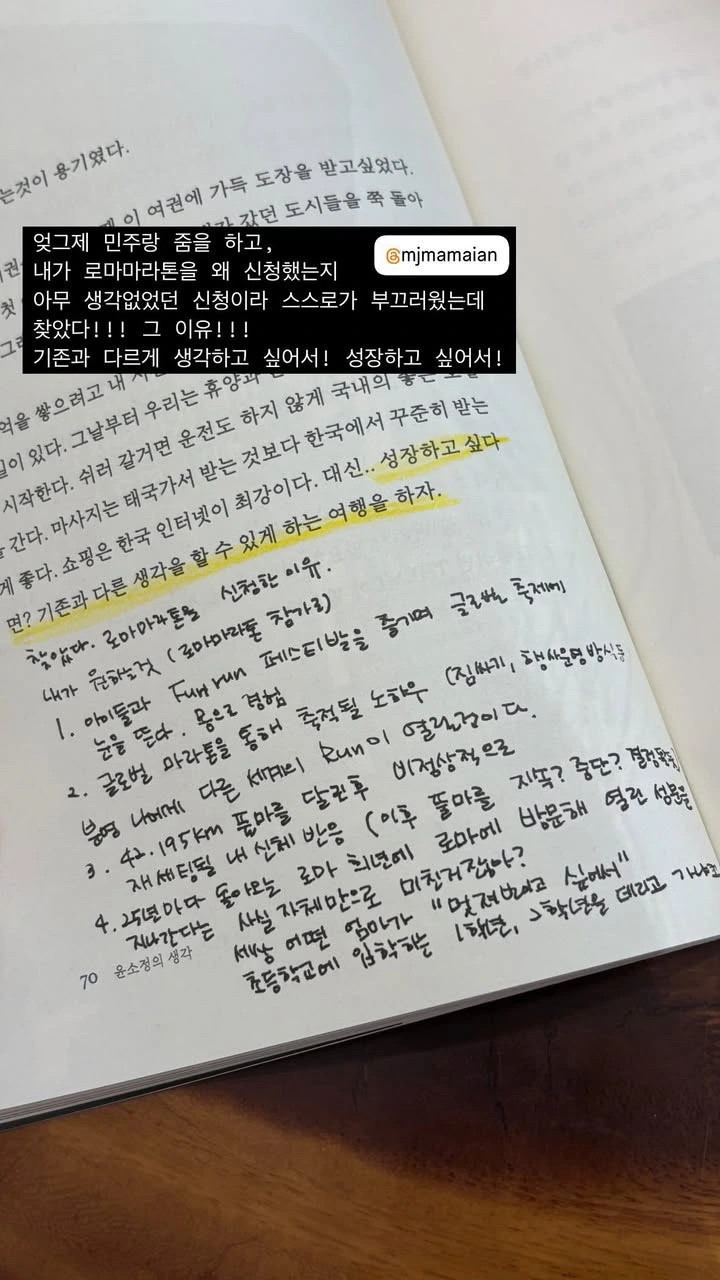 는것이 용기였다.
이 여권에 가득 도장을 받고싶었다.
갔던 도시들을 쭉 돌아
엊그제 민주랑 줌을 하고,
@mjmamaian
내가 로마마라톤을 왜 신청했는지
아무 생각없었던 신청이라 스스로가 부끄러웠는데
찾았다!!! 그 이유!!!
기존과 다르게 생각하고 싶어서! 성장하고 싶어서!
억을 쌓으려고 내
일이 있다. 그날부터 우리는 휴양과
시작한다. 쉬러 갈거면 운전도 하지 않게 국내의 좋은
간다. 마사지는 태국가서 받는 것보다 한국에서 꾸준히 받는
게 좋다. 쇼핑은 한국 인터넷이 최강이다. 대신.. 성장하고 싶다
면? 기존과 다른 생각을 할 수 있게 하는 여행을 하자.
찾았다. 로마마라톤을 신청한 이유.
내가 원하는것 (로마마라톤 참가로)
1. 아이들과 Fun run 페스티발을 즐기며 글로벌 축제에
눈을 뜬다. 몸으로 경험
2. 글로벌 마라톤을 통해 축적될 노하우 (짐싸기, 행사운영방식등
분명 나에게 다른 세계의 Run이 열릴것이다.
3. 42.195km 풀마를 달린후 비정상적으로
재세팅될 내 신체 반응 (이후 풀마를 지속? 중단? 결정확정)
4. 25년마다 돌아오는 로마 희년에 로마에 방문해 열린 성문을
지나간다는 사실 자체만으로 미친거잖아?
세상 어떤 엄마가 "멋져보이고 싶어서"
초등학교에 입학하는 1학년, 2학년을 데리고 가냐고
70 윤소정의 생각